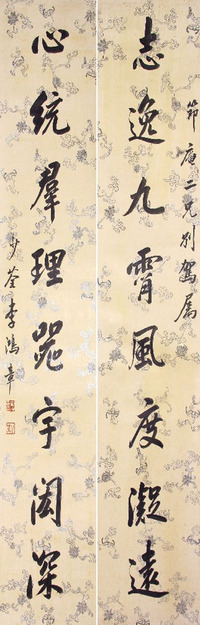 節庵二兄別駕屬
志逸九霄風度凝遠
心統群理器宇閎深
少荃李鴻章